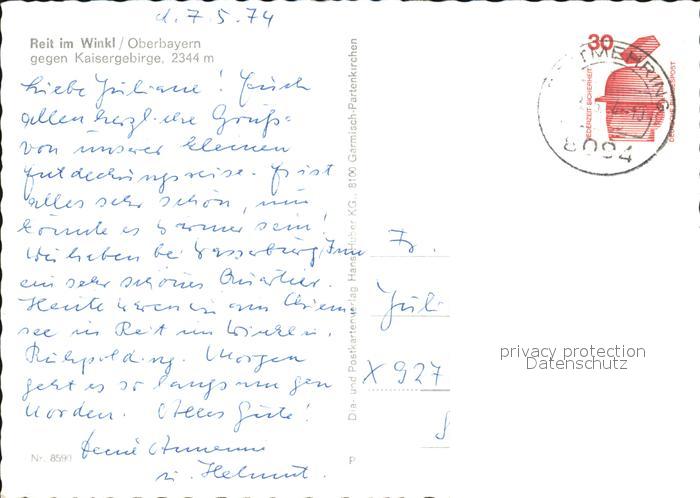 d. 7.5.74
Reit im Winkl / Oberbayern
gegen Kaisergebirge, 2344 m
Liebe Juliane! Euch
allen herzliche Grüße
von unserer kleinen
Entdeckungsreise. Es ist
alles sehr schön, nur
könnte es wärmer sein!
Wir haben bei Wasserburg/Inn
ein sehr schönes Quartier.
Heute waren wir am Chiem
see in Reit im Winkl u.
Ruhpolding. Morgen
geht es so langsam gen
Norden. Alles Gute!
Deine
u. Helmut.
Nr. 8590
P
Dia- und Postkartenverlag Hans Huber KG., 8100 Garmisch-Partenkirchen
30
JEDERZEIT SICHERHEIT
DEUTSCHE BUNDESPOST
8094
Fr.
Juli
X 927
privacy protection
Datenschutz